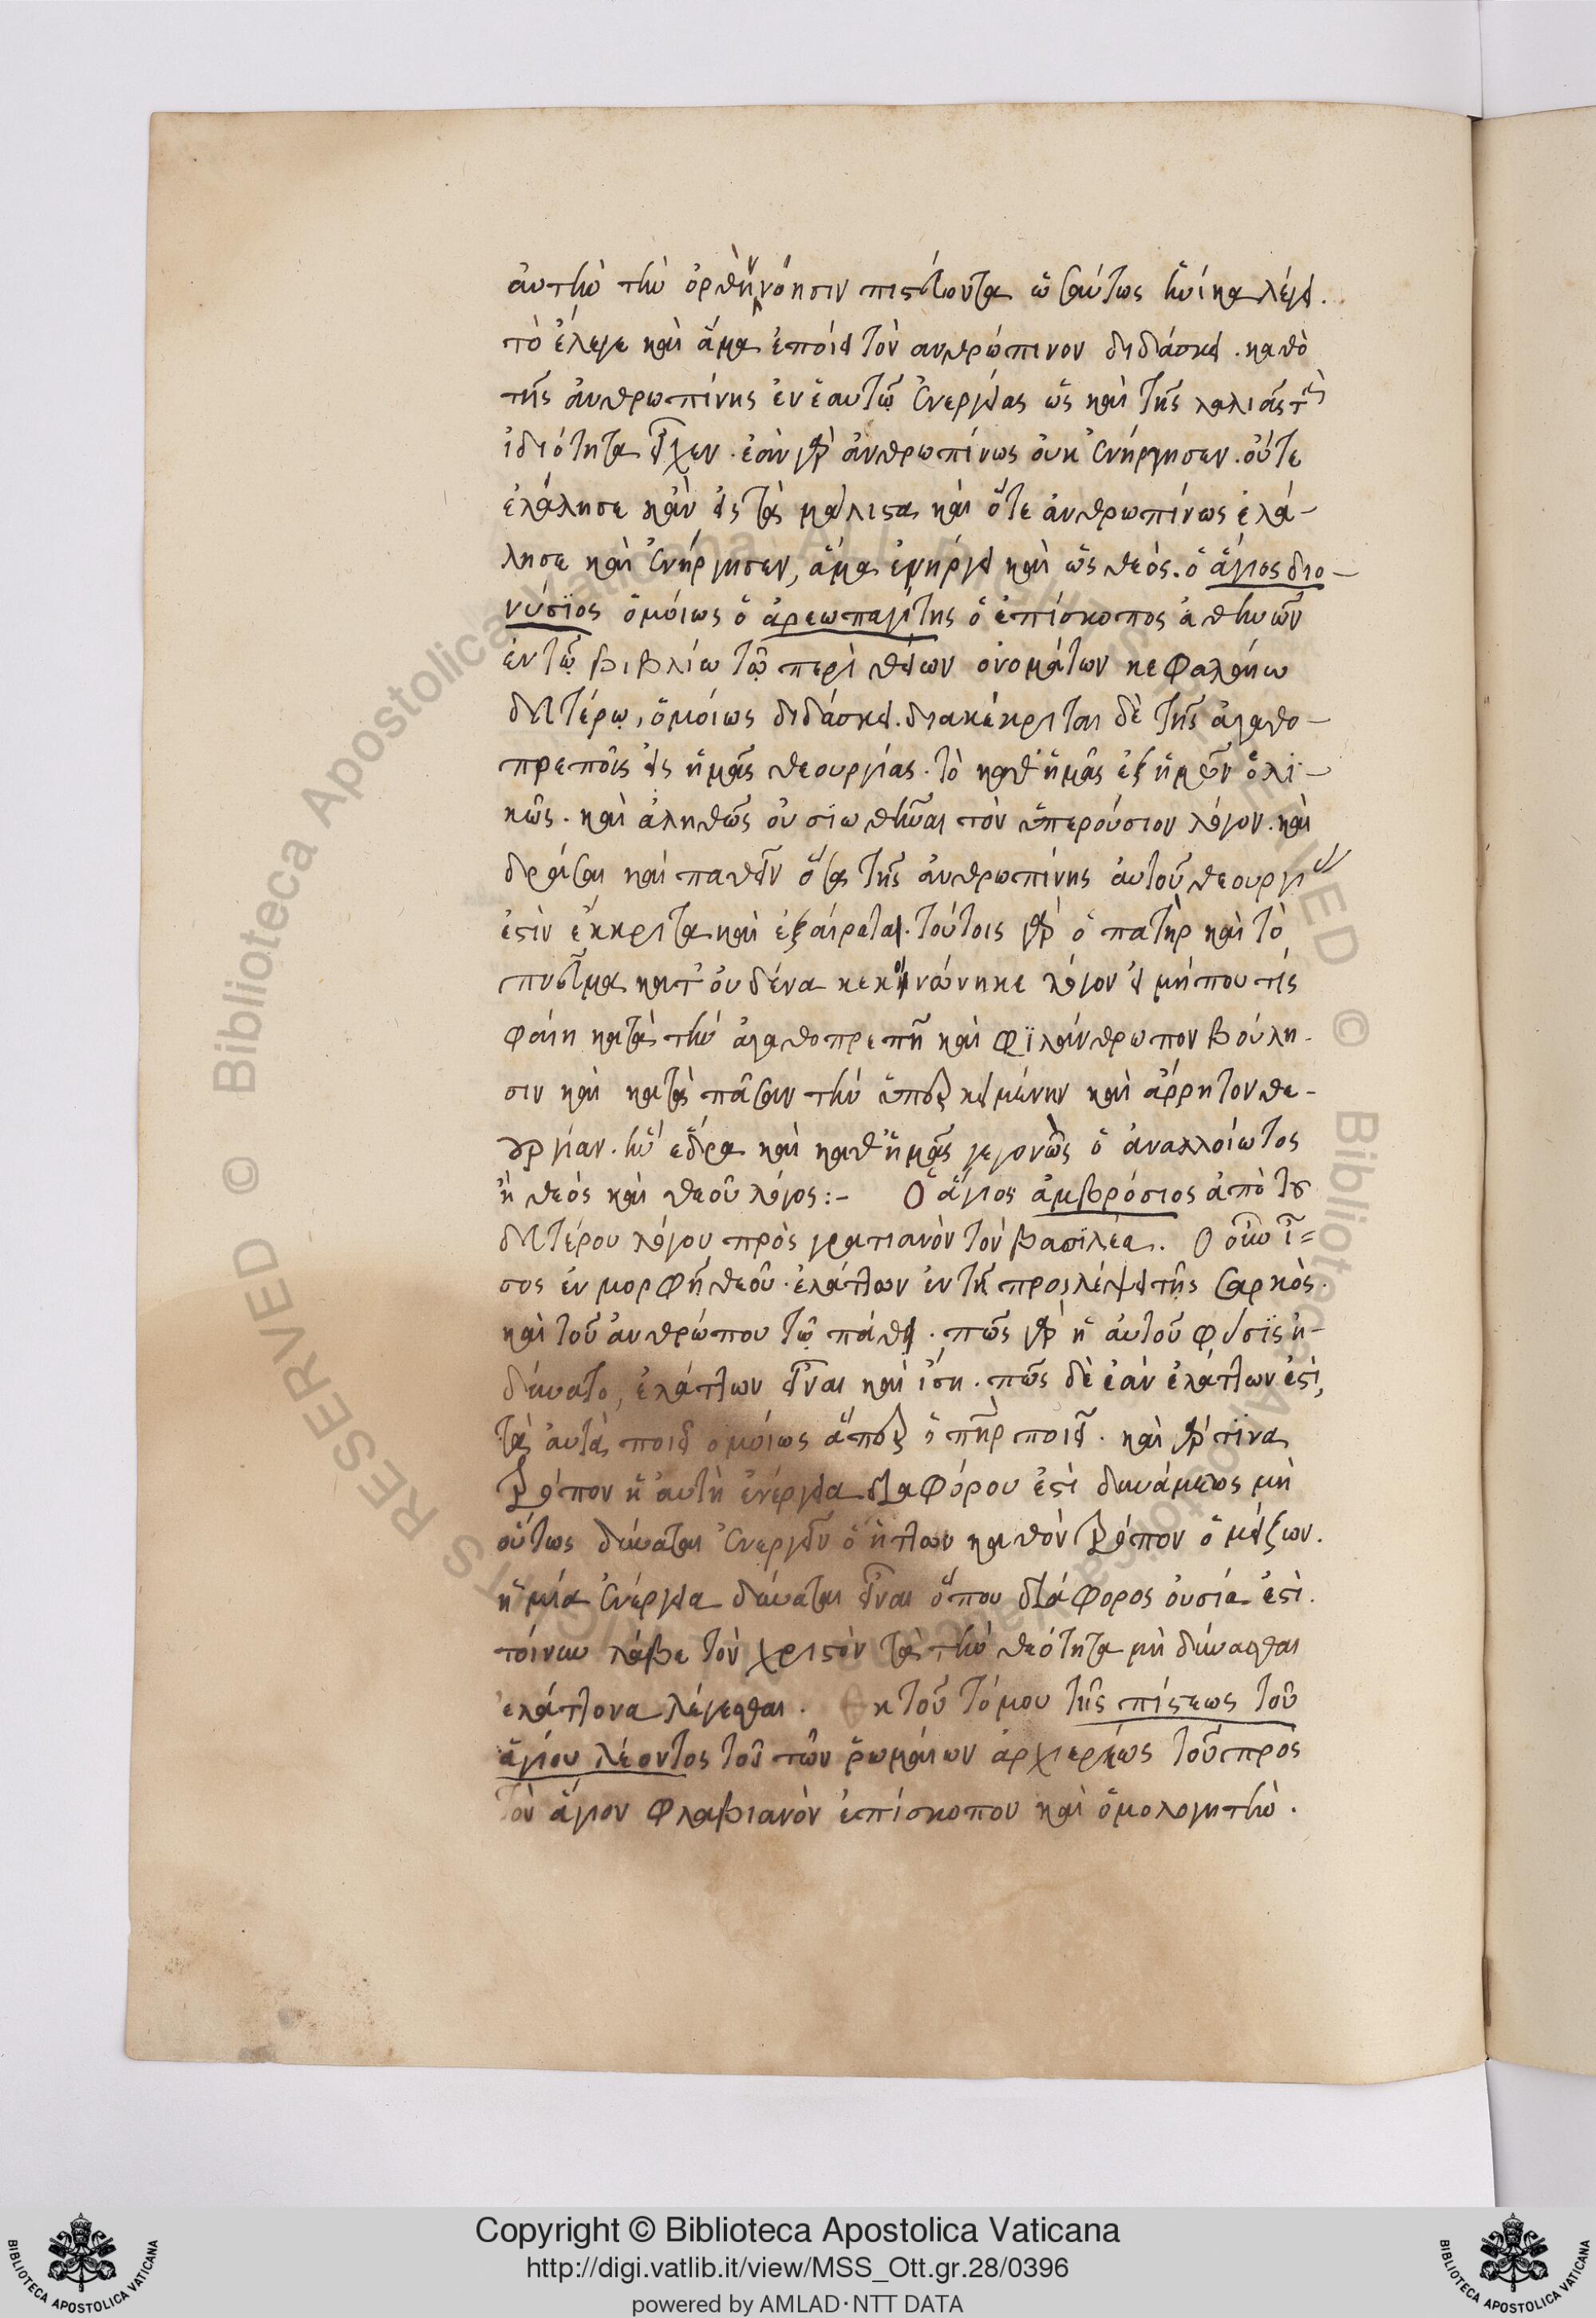 ἀυτὴν τὴν ὀρθὴν νόησιν πιστεύοντα ὡσαύτως ἡνίκα λέγει.
τὸ ἔλεγε καὶ ἅμα ἐποίει τὸν ανθρώπινον διδάσκει. καθὸ
τῆς ἀνθρωπίνης ἐν ἑαυτῷ ἐνεργείας ὡς καὶ τῆς λαλιᾶς τὴν
ἰδιότητα εἶχεν. ἐὰν γὰρ ἀνθρωπίνως ουκ ἐνήργησεν. οὔτε
ἐλάλησε κἀν εἰς τὰ μάλιστα καὶ ὅτε ἀνθρωπίνως ἐλά-
λησε καὶ ἐνήργησεν, ἅμα ἐνήργει καὶ ὡς θεός. ὁ ἅγιος διο-
νύσϊος ὁμόιως ὁ ἀρεωπαγίτης ὁ ἐπίσκοπος ἀθηνῶν
ἐν τῷ βιβλίω τῷ περὶ θείων ονομάτων κεφαλαίω
δευτέρῳ, ὁμόιως διδάσκει. διακέκριται δὲ τῆς ἀγαθο-
πρεποῖς εἰς ἡμᾶς θεουργίας. τὸ καθ ἡμᾶς ἐξ ἡμῶν ὁλι-
κῶς. καὶ ἀληθῶς ουσϊωθῆναι τὸν ὑπερούσιον λόγον. καὶ
δρᾶσαι καὶ παθεῖν ὅσα τῆς ἀνθρωπίνης ἀυτοῦ θεουργί
ἐστὶν ἔκκριτα καὶ ἐξαίρετα. τούτοις γὰρ ὁ πατὴρ καὶ τὸ
πνεῦμα κατ ουδένα κεκοινώνηκε λόγον εἰ μήπου τίς
φαίη κατὰ τὴν ἀγαθοπρεπῆ καὶ φϊλάνθρωπον βούλη-
σιν καὶ κατὰ πᾶσαν τὴν ὑπερκειμένην καὶ ἀρρητον θε-
ουργίαν. ἣν ἔδρα καὶ καθ ἡμᾶς γεγονὼς ὁ ἀναλλοίωτος
ἡ θεός καὶ θεοῦ λόγος:- Ὁ ἅγιος ἀμβρόσιος ἀπὸ του
δευτέρου λόγου πρὸς γρατιανὸν τὸν βασϊλέα. Ο οὖν ἴ=
σος ἐν μορφῆ θεοῦ. ἐλάττων ἐν τῇ προσλέψει τῆς σαρκὸς.
καὶ τοῦ ἀνθρώπου τῷ πάθει. πῶς γὰρ ἡ ἀυτοῦ φύσϊς ἠ-
δύνατο, ἐλάττων εἶναι καὶ ἴση. πῶς δὲ ἐὰν ἐλάττων ἐστὶ,
τὰ ἀυτὰ ποιεῖ ὁμόιως ἅπερ ὁ πατὴρ ποιεῖ. καὶ γὰρ τίνα
τρόπον ἡ ἀυτὴ ἐνέργεια διαφόρου ἐστὶ δυνάμεως μὴ
οὕτως δύναται ἐνεργεῖν ὁ ἥττων καθὸν τρόπον ὁ μείζων.
ἢ μία ἐνέργεια δύναται εἶναι ὅπου διάφορος ὀυσία ἐστὶ.
τοίνυν λάβε τὸν χριστὸν κατὰ τὴν θεότητα μὴ δύνασθαι
ἐλάττονα λέγεσθαι. Εκ τοῦ τόμου τῆς πίστεως τοῦ
ἁγίου λέοντος τοῦ τῶν ῥωμαίων ἀρχιερέως τοῦ προς
τὸν ἅγιον Φλαβιανὸν ἐπίσκοπον καὶ ὁμολογητὴν.
Copyright © Biblioteca Apostolica Vaticana
http://digi.vatlib.it/view/MSS_Ott.gr.28/0396
powered by AMLAD·NTT DATA